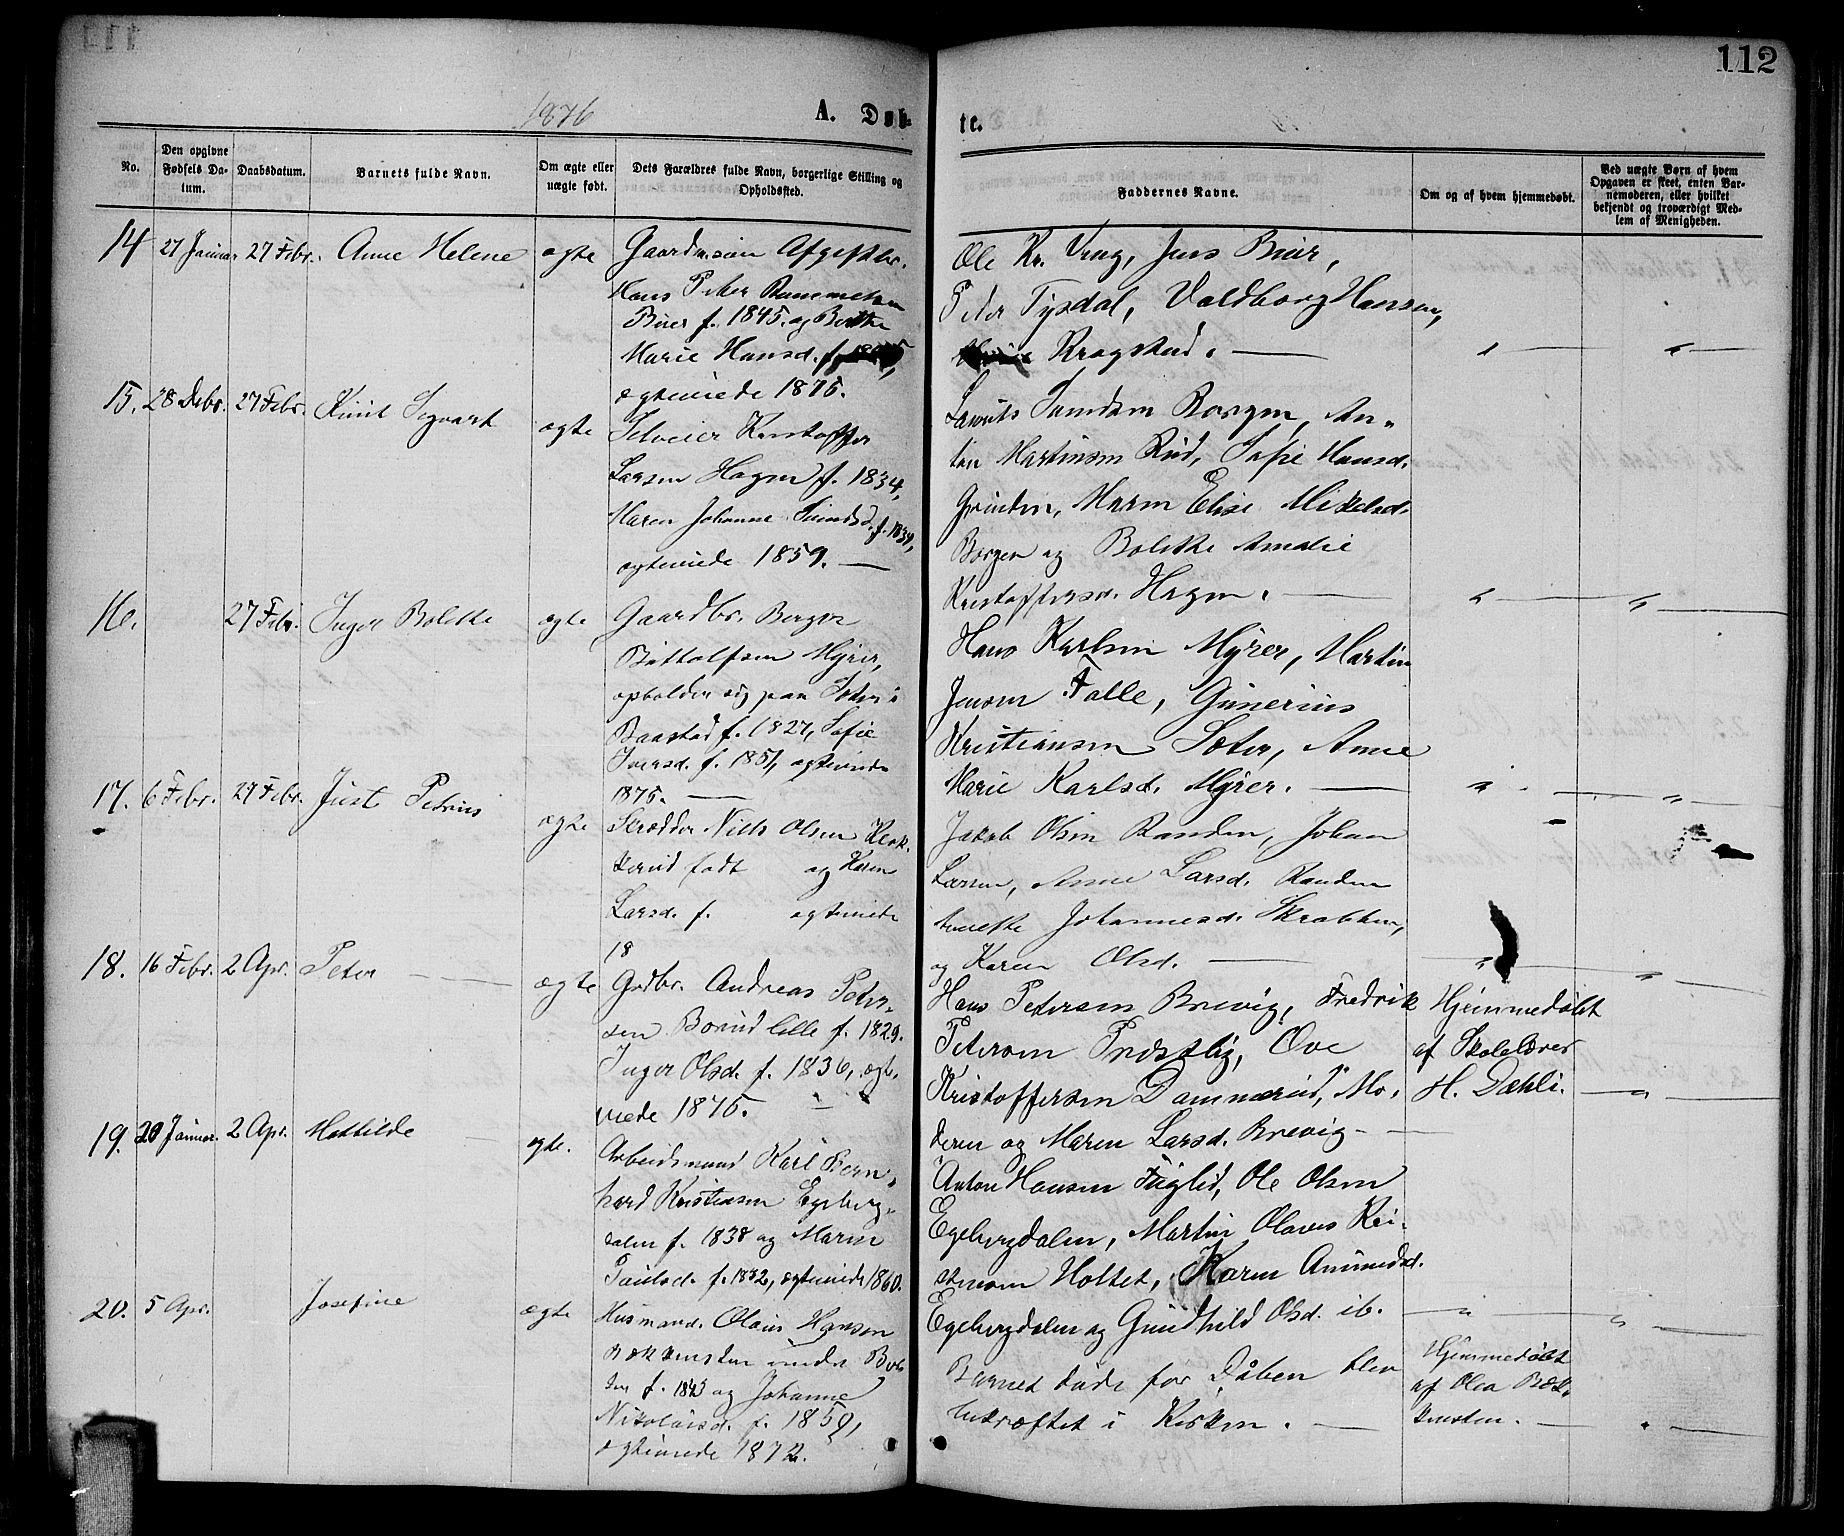 112
1876
A. Døb-
te.
No.
Den opgivne Fødsels Datum.
Daabsdatum.
Barnets fulde Navn.
Om ægte eller uægte født.
Dets Forældres fulde Navn, borgerlige Stilling og Opholdssted.
Faddernes Navne.
Om og af hvem hjemmedøbt.
Ved uægte Børn af hvem Opgaven er skeet, enten Barnemoderen, eller hvilket bekjendt og troværdigt Medlem af Menigheden.
14 27 Januar 27 Febr. Anne Helene ægte
Gaardm.søn
Hans Peter
Buer f. 1845. og
Marie Hansd. f.
ægteviede 1875.
Ole Kr. Jens Buer,
Peder Tysdal, Valdborg Hansen,
Kragstad. —
15. 28 Debr. 27 Febr. Knut Sigvart ægte
Selveier Kristoffer
Larsen Hagen f. 1834,
Maren Johanne f. 1839,
ægteviede 1859. —
Borgen, An-
ton Martinsen Rud, Sofie Hansd.
Maren Elise Mikelsd.
Borgen og Bolette Amalie
Kristoffersd. Hagen. —
16. 27 Febr. Inger Bolette ægte
Gaardbr. Berger
Myrer,
opholder sig paa Sæter i
Baastad f. 1827, Sofie
Iversd. f. 1851, ægteviede
1875. —
Hans Karlsen Myrer, Martin
Jensen Falle, Gunerius
Kristiansen Sæter, Anne
Marie Karlsd. Myrer. —
17. 6 Febr. 27 Febr. Just Petrus ægte
Skrædder Niels Olsen
født og Karen
Larsd. f. ægteviede
18
Jakob Olsen Randen, Johan
Larsen, Anne Larsd. Randen
Johannesd.
og Karen Olsd. —
18. 16 Febr. 2 Apr. Peter — ægte
Grdbr. Andreas Peter-
sen Borud lille f. 1829.
Inger Olsd. f. 1836, ægte-
viede 1875.
Hans Petersen Brevig, Fredrik
Petersen Præstlig, Ove
Kristoffersen Dammerud, Mo-
deren og Maren Larsd. Brevig. —
Hjemmedøbt
af Skolelærer
H. Dæhli.
19. 20 Januar. 2 Apr. Mathilde ægte.
Arbeidsmand Karl Bern-
hard Kristiansen Egeberg-
dalen f. 1838 og Maren
Paulsd. f. 1832, ægteviede 1860.
Anton Hansen Fuglid, Ole Olsen
Egebergdalen, Martin Olaves Kri-
stensen Holtet, Karen Amundsd.
Egebergdalen og Gundhild Olsd. ib.
20. 5 Apr. Josefine ægte
Husmand. Olaus Hansen
Bækkensten under
f. 1843 og Johanne
Nikolaisd. f. 1850,
ægteviede 1872.
Barnet døde før Dåben blev
bekræftet i Kirken. —
Hjemmedøbt
af Olea Bæk-
kensten. —